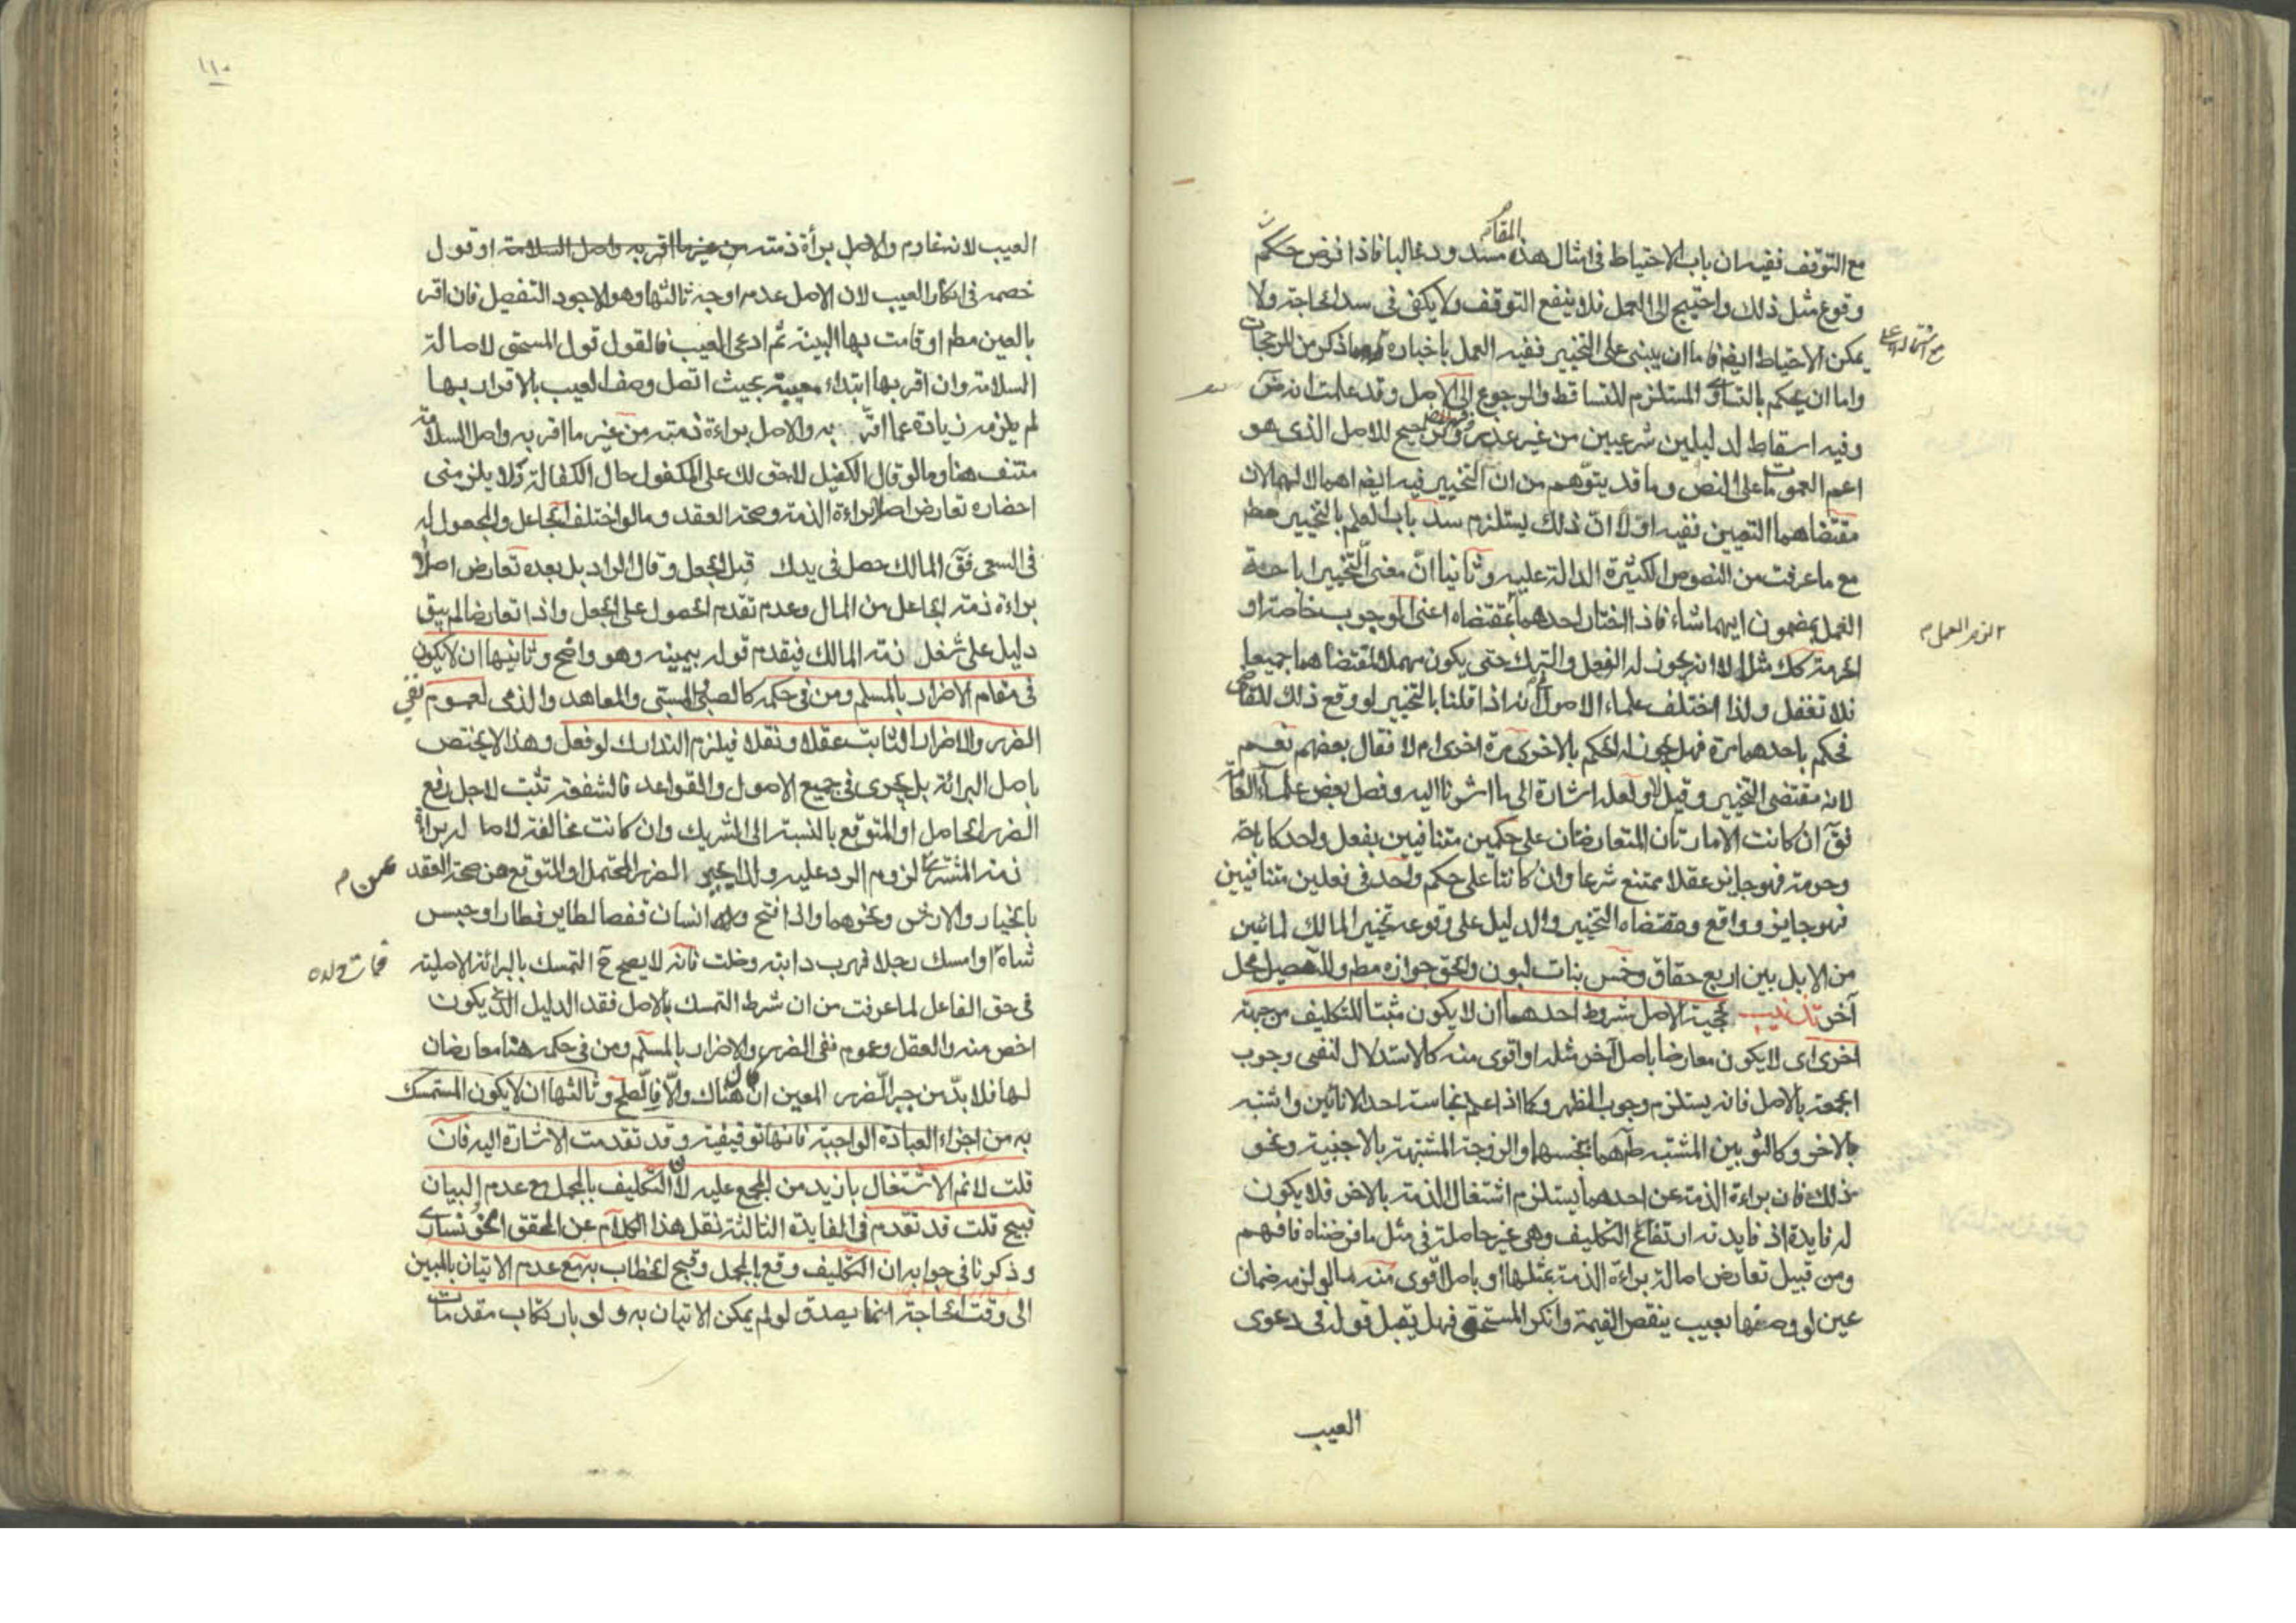 المقام
مع التوقف ففيه ان باب الاحتياط فى امثال هذه مسدود غالبا فاذا فرض حكم
وقوع مثل ذلك واحتيج الى العمل فلا ينفع التوقف ولا يكفى فى سد الحاجة ولا
يمكن الاحتياط ايضا فاما ان يبنى على التخيير ففيه العمل باخباره وما ذكر من المرجحات
واما ان يحكم بالتساوى المستلزم للتساقط والرجوع الى الاصل وقد علمت انه
وفيه اسقاط لدليلين شرعيين من غير عذر وترجيح للاصل الذى هو
اعم العمومات على النص وما قد يتوهم من ان التخيير فيه ايضا اهمالا لهما لان
مقتضاهما التعيين ففيه اولا ان ذلك يستلزم سد باب العلم بالتخيير مطم
مع ما عرفت من النصوص الكثيرة الدالة عليه وثانيا ان معنى التخيير اباحة
العمل بمضمون ايهما شاء فاذا اختار احدهما بمقتضاه اعنى الوجوب خاصة او
الزم العمل م
الحرمة كك مثلا لا انه يجوز له الفعل والترك حتى يكون مهملا لمقتضاهما جميعا
فلا تغفل ولذا اختلف علماء الاصول فى انه اذا قلنا بالتخيير لو وقع ذلك للقاضى
فحكم باحدهما مرة فهل يجوز له الحكم بالاخرى مرة اخرى ام لا فقال بعضهم نعم
لانه مقتضى التخيير وقيل لا ولعله اشارة الى ما اشرنا اليه وفصل بعض علماء العامة
فق ان كانت الامارتان المتعارضتان على حكمين متنافيين بفعل واحد كاباحة
وحرمة فهو جايز عقلا ممتنع شرعا وان كانتا على حكم واحد فى فعلين متنافيين
فهو جايز وواقع ومقتضاه التخيير والدليل على وقوعه تخيير المالك لمائتين
من الابل بين اربع حقاق وخمس بنات لبون والحق جوازه مطم وللتفصيل محل
آخر تذنيب لحجية الاصل شروط احدهما ان لا يكون مثبتا للتكليف من جهة
اخرى اى لا يكون معارضا باصل آخر مثله او اقوى منه كالاستدلال لنفى وجوب
الجمعة بالاصل فانه يستلزم وجوب الظهر وكما اذا علم نجاسة احد الانائين واشتبه
بالاخر وكالثوبين المشتبه طاهرهما بنجسهما والزوجة المشتبهة بالاجنبية ونحو
ذلك فان براءة الذمة عن احدهما يستلزم اشتغال الذمة بالاخر فلا يكون
له فايدة اذ فايدته ارتفاع التكليف وهى غير حاصلة فى مثل ما فرضناه فافهم
ومن قبيل تعارض اصالة براءة الذمة بمثلها او باصل اقوى منه ما لو لزمه ضمان
عين لو وصفها بعيب ينقص القيمة وانكر المستحق فهل يقبل قوله فى دعوى
العيب
١١٠
العيب لانه غارم والاصل برأة ذمته من غير ما اقر به واصل السلامة او قول
خصمه فى انكار العيب لان الاصل عدمه اوجه ثالثها وهو الاجود التفصيل فان اقر
بالعين مطم او قامت بها البينة ثم ادعى العيب فالقول قول المستحق لاصالة
السلامة وان اقر بها ابتداء معيبة بحيث اتصل وصف العيب بالاقرار بها
لم يلزمه زيادة عما اقر به والاصل براءة ذمته من غير ما اقر به واصل السلامة
منتف هنا وما لو قال الكفيل لا حق لك على المكفول حال الكفالة فلا يلزمنى
احضاره تعارض اصل براءة الذمة وصحة العقد وما لو اختلف الجاعل والمجعول له
فى السعى فق المالك حصل فى يدك قبل الجعل وقال الراد بل بعده تعارض اصل
براءة ذمة الجاعل من المال وعدم تقدم الحصول على الجعل واذا تعارضا لم يبق
دليل على شغل ذمة المالك فيقدم قوله بيمينه وهو واضح وثانيها ان لا يكون
فى مقام الاضرار بالمسلم ومن فى حكمه كالصبى المسبى والمعاهد والذمى لعموم نفى
الضرر والاضرار الثابت عقلا ونقلا فيلزم التدارك لو فعل وهذا لا يختص
باصل البرائة بل يجرى فى جميع الاصول والقواعد فالشفعة تثبت لاجل رفع
الضرر الحاصل او المتوقع بالنسبة الى الشريك وان كانت مخالفة لاصالة براءة
ذمة المشترى لزوم الرد عليه ولذا يجبر الضرر المحتمل او المتوقع من صحة العقد
بالخيار والارش ونحوهما واذا فتح انسان قفصا لطاير فطار او حبس
شاة او امسك رجلا فهرب دابته وضلت فانه لا يصح ح التمسك بالبرائة الاصلية
فمات ولده
فى حق الفاعل لما عرفت من ان شرط التمسك بالاصل فقد الدليل الذى يكون
اخص منه والعقل وعموم نفى الضرر والاضرار بالمسلم ومن فى حكمه هنا معارضان
لها فلا بد من جبر الضرر المعين ان كان هناك والا فالصلح وثالثها ان لا يكون المستمسك
به من اجزاء العبادة الواجبة فانها توقيفية وقد تقدمت الاشارة اليه فان
قلت لا نم الاشتغال بازيد من المجمع عليه لان التكليف بالمجمل مع عدم البيان
قبيح قلت قد تقدم فى الفايدة الثالثة نقل هذا الكلام عن المحقق الخونسارى
وذكرنا فى جوابه ان التكليف وقع بالمجمل وقبح الخطاب به مع عدم الاتيان بالمبين
الى وقت الحاجة انما يصدق لو لم يمكن الاتيان به ولو بارتكاب مقدمات